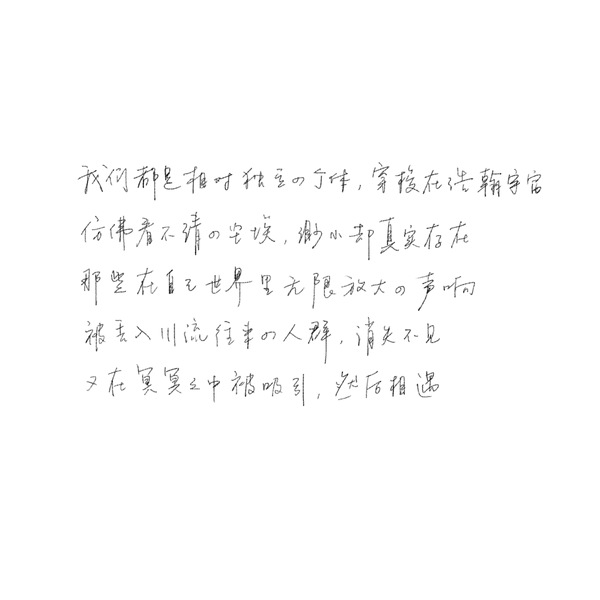 我们都是相对独立の个体，穿梭在浩瀚宇宙
仿佛看不清の尘埃，渺小却真实存在
那些在自己世界里无限放大の声响
被丢入川流往来の人群，消失不见
又在冥冥之中被吸引，然后相遇